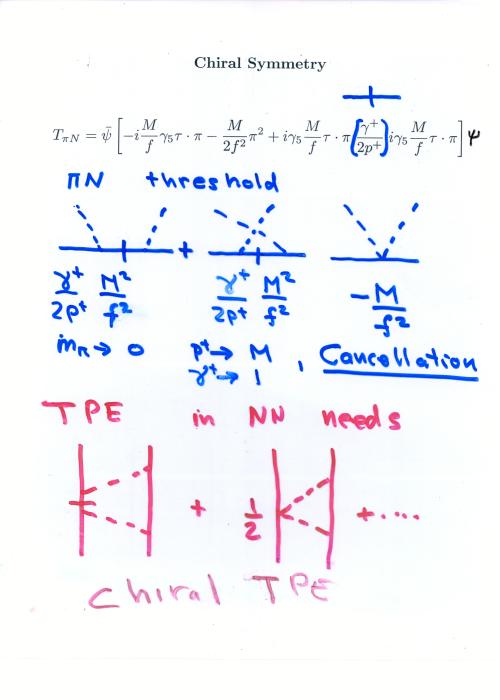 Chiral Symmetry
T_{πN} = ψ̄ [ −i M/f γ₅τ · π − M/2f² π² + iγ₅ M/f τ · π (γ⁺/2p⁺) iγ₅ M/f τ · π ] ψ
πN threshold
+
γ⁺/2p⁺ M²/f² γ⁺/2p⁺ M²/f² −M/f²
m_π → 0 p⁺ → M , Cancellation
γ⁺ → 1
TPE in NN needs
+ 1/2 + ....
Chiral TPE